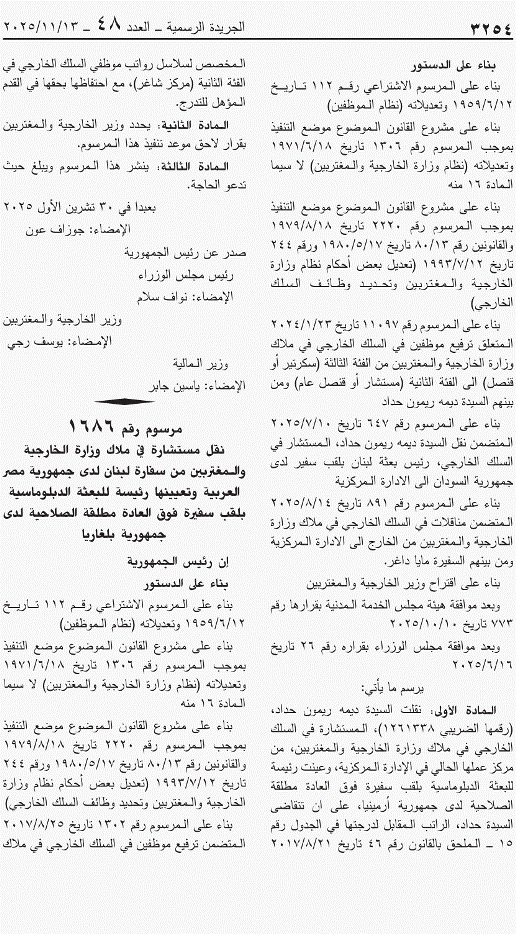 ٣٢٥٤
الجريدة الرسمية ــ العدد ٤٨ ــ ٢٠٢٥/١١/١٣
بناء على الدستور
بناء على المرسوم الاشتراعي رقم ١١٢ تاريخ
١٩٥٩/٦/١٢ وتعديلاته (نظام الموظفين)
بناء على مشروع القانون الموضوع موضع التنفيذ
بموجب المرسوم رقم ١٣٠٦ تاريخ ١٩٧١/٦/١٨
وتعديلاته (نظام وزارة الخارجية والمغتربين) لا سيما
المادة ١٦ منه
بناء على مشروع القانون الموضوع موضع التنفيذ
بموجب المرسوم رقم ٢٢٢٠ تاريخ ١٩٧٩/٨/١٨
والقانونين رقم ٨٠/١٣ تاريخ ١٩٨٠/٥/١٧ ورقم ٢٤٤
تاريخ ١٩٩٣/٧/١٢ (تعديل بعض أحكام نظام وزارة
الخارجية والمغتربين وتحديد وظائف السلك
الخارجي)
بناء على المرسوم رقم ١١٠٩٧ تاريخ ٢٠٢٤/١/٢٣
المتعلق ترفيع موظفين في السلك الخارجي في ملاك
وزارة الخارجية والمغتربين من الفئة الثالثة (سكرتير أو
قنصل) الى الفئة الثانية (مستشار أو قنصل عام) ومن
بينهم السيدة ديمه ريمون حداد
بناء على المرسوم رقم ٦٤٧ تاريخ ٢٠٢٥/٧/١٠
المتضمن نقل السيدة ديمه ريمون حداد، المستشار في
السلك الخارجي، رئيس بعثة لبنان بلقب سفير لدى
جمهورية السودان الى الادارة المركزية
بناء على المرسوم رقم ٨٩١ تاريخ ٢٠٢٥/٨/١٤
المتضمن مناقلات في السلك الخارجي في ملاك وزارة
الخارجية والمغتربين من الخارج الى الادارة المركزية
ومن بينهم السفيرة مايا داغر.
بناء على اقتراح وزير الخارجية والمغتربين
وبعد موافقة هيئة مجلس الخدمة المدنية بقرارها رقم
٧٧٣ تاريخ ٢٠٢٥/١٠/١٠
وبعد موافقة مجلس الوزراء بقراره رقم ٢٦ تاريخ
٢٠٢٥/٦/١٦
يرسم ما يأتي:
المادة الأولى: نقلت السيدة ديمه ريمون حداد،
(رقمها الضريبي ١٢٦١٣٣٨)، المستشارة في السلك
الخارجي في ملاك وزارة الخارجية والمغتربين، من
مركز عملها الحالي في الإدارة المركزية، وعينت رئيسة
للبعثة الدبلوماسية بلقب سفيرة فوق العادة مطلقة
الصلاحية لدى جمهورية أرمينيا، على ان تتقاضى
السيدة حداد، الراتب المقابل لدرجتها في الجدول رقم
١٥ ــ الملحق بالقانون رقم ٤٦ تاريخ ٢٠١٧/٨/٢١
المخصص لسلاسل رواتب موظفي السلك الخارجي في
الفئة الثانية (مركز شاغر)، مع احتفاظها بحقها في القدم
المؤهل للتدرج.
المادة الثانية: يحدد وزير الخارجية والمغتربين
بقرار لاحق موعد تنفيذ هذا المرسوم.
المادة الثالثة: ينشر هذا المرسوم ويبلغ حيث
تدعو الحاجة.
بعبدا في ٣٠ تشرين الأول ٢٠٢٥
الإمضاء: جوزاف عون
صدر عن رئيس الجمهورية
رئيس مجلس الوزراء
الإمضاء: نواف سلام
وزير الخارجية والمغتربين
الإمضاء: يوسف رجي
وزير المالية
الإمضاء: ياسين جابر
مرسوم رقم ١٦٨٦
نقل مستشارة في ملاك وزارة الخارجية
والمغتربين من سفارة لبنان لدى جمهورية مصر
العربية وتعيينها رئيسة للبعثة الدبلوماسية
بلقب سفيرة فوق العادة مطلقة الصلاحية لدى
جمهورية بلغاريا
إن رئيس الجمهورية
بناء على الدستور
بناء على المرسوم الاشتراعي رقم ١١٢ تاريخ
١٩٥٩/٦/١٢ وتعديلاته (نظام الموظفين)
بناء على مشروع القانون الموضوع موضع التنفيذ
بموجب المرسوم رقم ١٣٠٦ تاريخ ١٩٧١/٦/١٨
وتعديلاته (نظام وزارة الخارجية والمغتربين) لا سيما
المادة ١٦ منه
بناء على مشروع القانون الموضوع موضع التنفيذ
بموجب المرسوم رقم ٢٢٢٠ تاريخ ١٩٧٩/٨/١٨
والقانونين رقم ٨٠/١٣ تاريخ ١٩٨٠/٥/١٧ ورقم ٢٤٤
تاريخ ١٩٩٣/٧/١٢ (تعديل بعض أحكام نظام وزارة
الخارجية والمغتربين وتحديد وظائف السلك الخارجي)
بناء على المرسوم رقم ١٣٠٢ تاريخ ٢٠١٧/٨/٢٥
المتضمن ترفيع موظفين في السلك الخارجي في ملاك